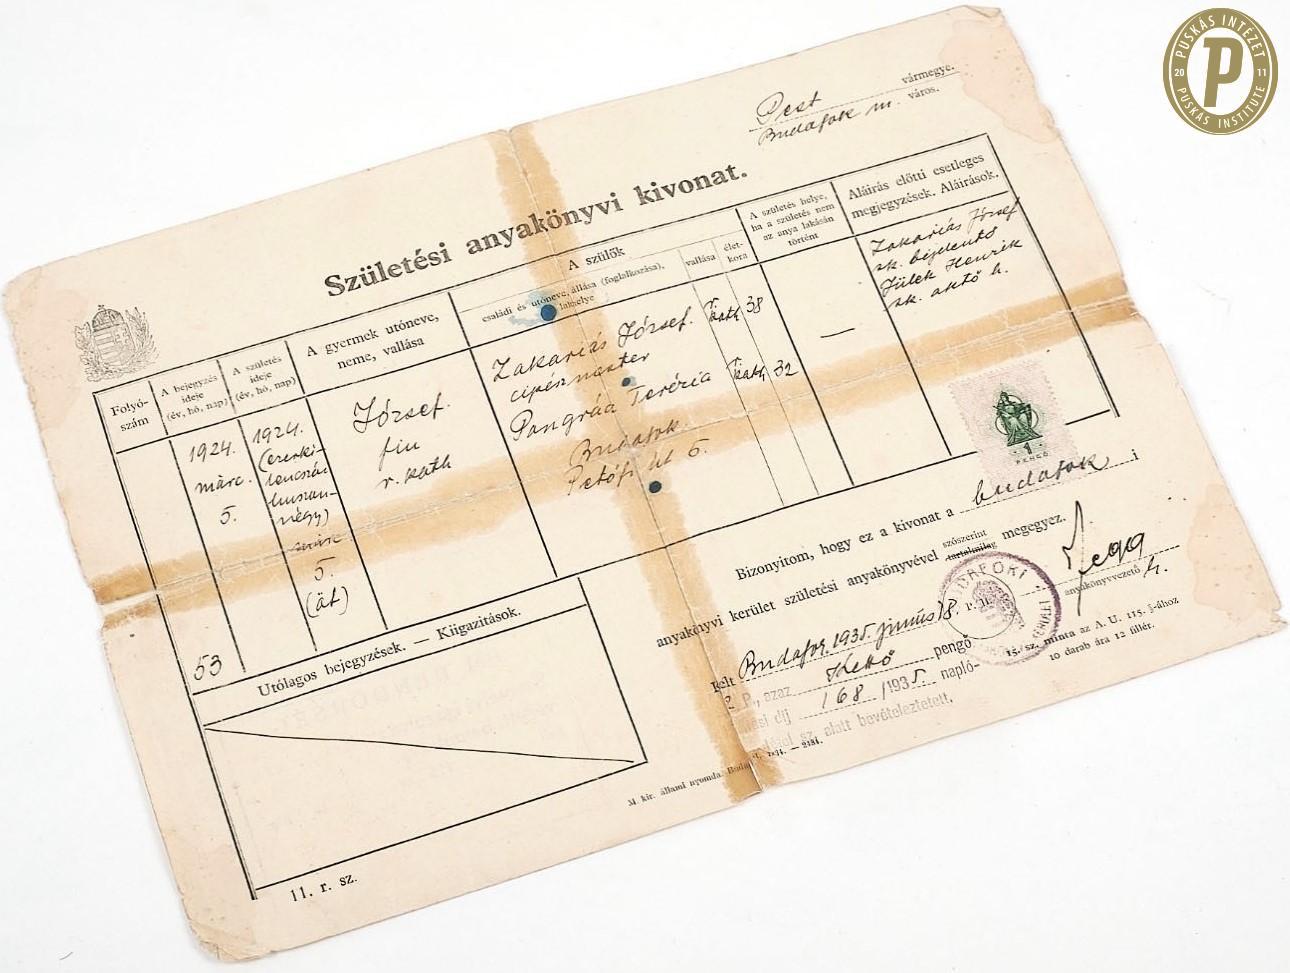 PUSKÁS INTÉZET
20 P 11
PUSKÁS INSTITUTE
Pest vármegye.
Budafok m. város.
Születési anyakönyvi kivonat.
Folyó-
szám
A bejegyzés
ideje
(év, hó, nap)
A születés
ideje
(év, hó, nap)
A gyermek utóneve,
neme, vallása
A szülők
családi és utóneve, állása (foglalkozása),
lakhelye
vallása
élet-
kora
A születés helye,
ha a születés nem
az anya lakásán
történt
Aláírás előtti esetleges
megjegyzések. Aláírások.
53
1924.
márc.
5.
1924.
(ezerki-
lencszáz
huszon-
négy)
márc
5.
(öt)
József.
fiu
r. kath
Zakariás József.
cipészmester
r. kath 38
Pongrác Terézia
r. kath, 32
Budafok
Petőfi út 6.
—
Zakariás József
sk. bejelentő
Fülek Henrik
sk. aktő h.
1
PENGŐ
Utólagos bejegyzések. — Kiigazítások.
Bizonyítom, hogy ez a kivonat a budafok i
anyakönyvi kerület születési anyakönyvével szószerint tartalmilag megegyez.
Kelt Budafok, 1935. junius 18.
anyakönyvvezető h.
2 P., azaz Kettő pengő
díj 168 /1935. napló-
sz. alatt bevételeztetett.
15. sz. minta az A. U. 115. §-ához
10 darab ára 12 fillér.
M. kir. állami nyomda. Budapest,
11. r. sz.